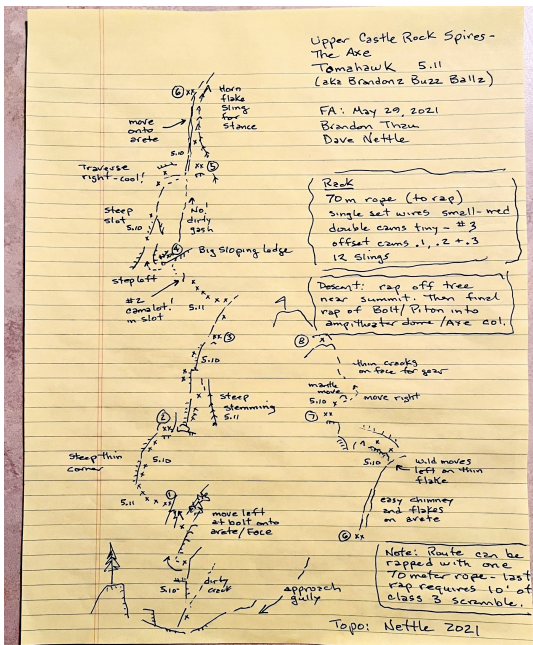 Upper Castle Rock Spires-
The Axe
Tomahawk 5.11
(aka Brandonz Buzz Ballz)
FA: May 29, 2021
Brandon Thau
Dave Nettle
Rack
70m rope (to rap)
single set wires small-med
double cams tiny - #3
offset cams .1, .2 + .3
12 slings
Descent: rap off tree
near summit. Then final
rap of Bolt/Piton into
ampitheater dome/Axe col.
6 xx
Horn
flake
Sling
for
Stance
move
onto
arete
5.10
xx 5
Traverse
right-cool!
No!
dirty
gash
Steep
slot
5.10
4
Big Sloping Ledge
step left
#2
camalot!
in slot
5.11
xx 3
5.10
Steep
stemming
5.11
2
xx
5.10
Steep thin
corner
5.11
1
xx
move left
at bolt onto
arete/Face
5.10-
dirty
crack
approach
gully
8
x
thin cracks
on face for gear
mantle
move
5.10
move right
7
xx
5.10
wild moves
left on thin
flake
easy chimney
and flakes
on arete
6 xx
Note: Route can be
rapped with one
70 meter rope - last
rap requires 10' of
class 3 scramble.
Topo: Nettle 2021